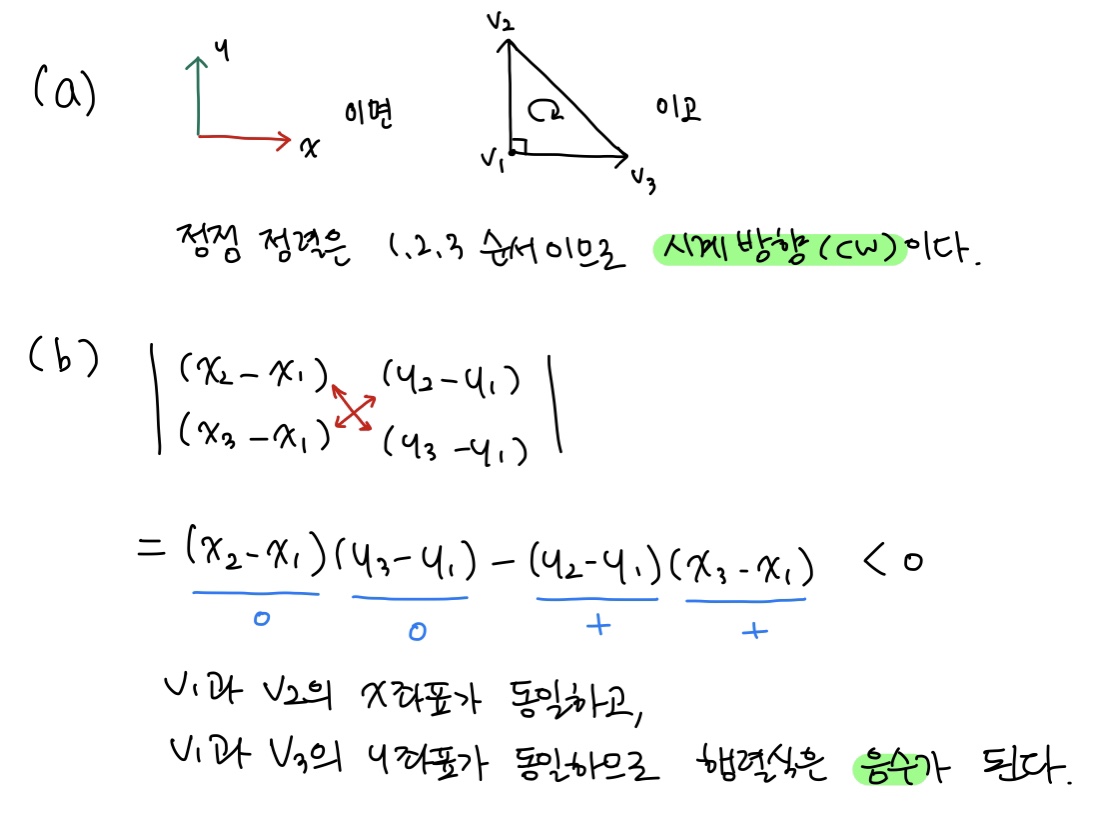 (a) y x 이면 V₂ V₁ V₃ 이고
정점 정렬은 1.2.3 순서이므로 시계 방향(CW)이다.
(b) | (x₂-x₁) (y₂-y₁) |
| (x₃-x₁) (y₃-y₁) |
= (x₂-x₁)(y₃-y₁) - (y₂-y₁)(x₃-x₁) < 0
0 0 + +
V₁과 V₂의 x좌표가 동일하고,
V₁과 V₃의 y좌표가 동일하므로 행렬식은 음수가 된다.